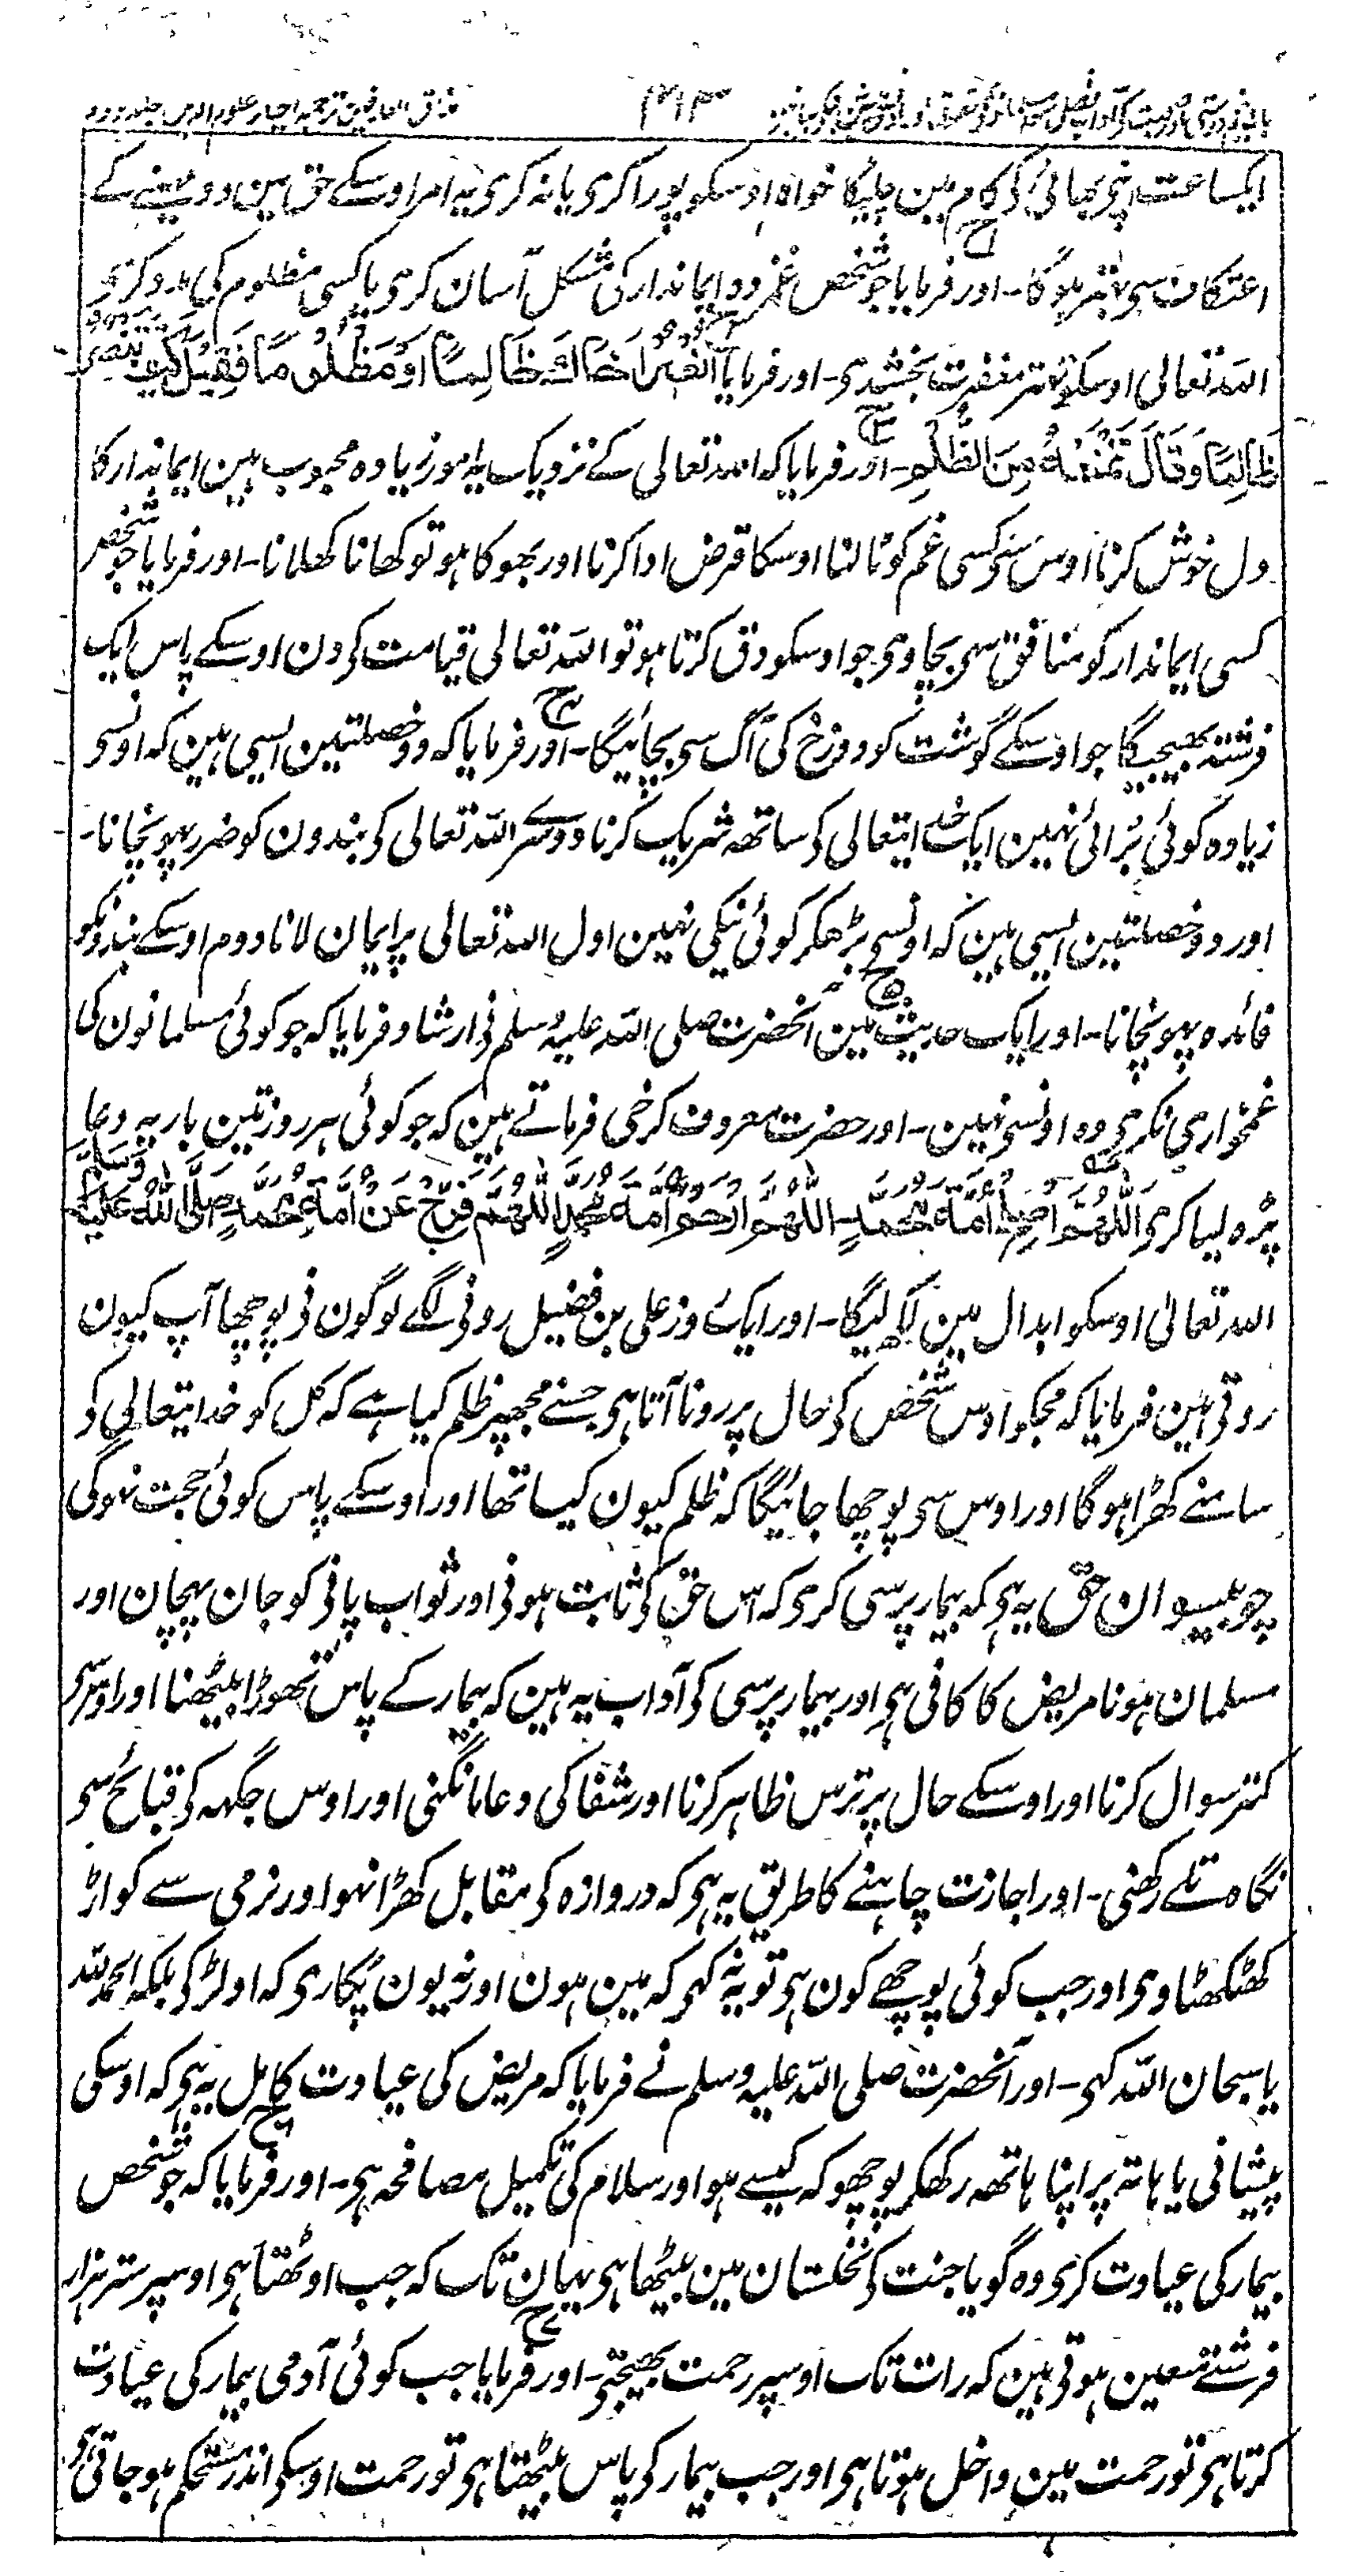 مذاق العارفین ترجمہ احیاء علوم الدین جلد دوم
ایکساعت اپنے بھائی کے کام مین چلیگا خواہ اوسکو پورا کری یا نہ کری یہ امر اوسکے حق مین دو مہینے کے
اعتکاف سی بہتر ہوگا۔ اور فرمایا جو شخص غمزدہ ایماندار کی مشکل آسان کری یا کسی مظلوم کی مدد کری
اللہ تعالی اوسکو تہتر مغفرت بخشدی۔ اور فرمایا اُنْصُرْ اَخَاكَ ظَالِمًا اَوْ مَظْلُوْمًا فَقِيْلَ كَيْفَ نَنْصُرُهُ
ظَالِمًا وَقَالَ تَمْنَعُهُ مِنَ الظُّلْمِ۔ اور فرمایا کہ اللہ تعالی کے نزدیک یہ امور زیادہ محبوب ہین ایماندار کا
دل خوش کرنا اوس سے کسی غم کو ٹالنا اوسکا قرض ادا کرنا اور بھوکا ہو تو کھانا کھلانا۔ اور فرمایا جو شخص
کسی ایماندار کو منافق سی بچاوی جو اوسکو دق کرتا ہو تو اللہ تعالی قیامت کے دن اوسکے پاس ایک
فرشتہ بھیجیگا جو اوسکے گوشت کو دوزخ کی آگ سی بچائیگا۔ اور فرمایا کہ دو خصلتین ایسی ہین کہ اونسی
زیادہ کوئی برائی نہین ایک خدایتعالی کے ساتھہ شریک کرنا دوسرے اللہ تعالی کے بندون کو ضرر پہونچانا۔
اور دو خصلتین ایسی ہین کہ اونسی بڑھکر کوئی نیکی نہین اول اللہ تعالی پر ایمان لانا دوم اوسکے بندونکو
فائدہ پہونچانا۔ اور ایک حدیث مین آنحضرت صلی اللہ علیہ وسلم نے ارشاد فرمایا کہ جو کوئی مسلمانون کی
غمخواری نکری وہ اونسی نہین۔ اور حضرت معروف کرخی فرماتے ہین کہ جو کوئی ہر روز تین بار یہ دعا
پڑہ لیا کری اَللّٰهُمَّ اَصْلِحْ اُمَّةَ مُحَمَّدٍ۔ اَللّٰهُمَّ ارْحَمْ اُمَّةَ مُحَمَّدٍ اَللّٰهُمَّ فَرِّجْ عَنْ اُمَّةِ مُحَمَّدٍ صَلَّى اللّٰهُ عَلَيْهِ وَسَلَّمَ
اللہ تعالیٰ اوسکو ابدال مین لکھ لیگا۔ اور ایک روز علی بن فضیل رونے لگے لوگون نے پوچھا آپ کیون
روتے ہین فرمایا کہ مجکو اوس شخص کے حال پر رونا آتا ہی جسنے مجھپر ظلم کیا ہے کہ کل کو خدایتعالی کے
سامنے کھڑا ہوگا اور اوس سی پوچھا جائیگا کہ ظلم کیون کیا تھا اور اوسکے پاس کوئی حجت نہوگی
چوبیسوان حق یہ ہی کہ بیمار پرسی کری کہ اس حق کے ثابت ہونے اور ثواب پانے کو جان پہچان اور
مسلمان ہونا مریض کا کافی ہی اور بیمار پرسی کے آداب یہ ہین کہ بیمار کے پاس تھوڑا بیٹھنا اور اوس سی
کمتر سوال کرنا اور اوسکے حال پر ترس ظاہر کرنا اور شفا کی دعا مانگنی اور اوس جگہہ کے قبائح سی
نگاہ تلے رکھنی۔ اور اجازت چاہنے کا طریق یہ ہی کہ دروازہ کے مقابل کھڑا نہو اور نرمی سے کواڑ
کھٹکھٹاوی اور جب کوئی پوچھے کون ہی تو یہ نہ کہی کہ مین ہون اور نہ یون پکاری کہ او لڑکے بلکہ الحمد للہ
یا سبحان اللہ کہی۔ اور آنحضرت صلی اللہ علیہ وسلم نے فرمایا کہ مریض کی عیادت کامل یہ ہی کہ اوسکی
پیشانی یا ہاتہ پر اپنا ہاتھہ رکھکر پوچھو کہ کیسے ہو اور سلام کی تکمیل مصافحہ ہی۔ اور فرمایا کہ جو شخص
بیمار کی عیادت کری وہ گویا جنت کے نخلستان مین بیٹھا ہی یہان تک کہ جب اوٹھتا ہی اوسپر ستر ہزار
فرشتے متعین ہوتے ہین کہ رات تک اوسپر رحمت بھیجتے۔ اور فرمایا جب کوئی آدمی بیمار کی عیادت
کرتا ہی تو رحمت مین داخل ہوتا ہی اور جب بیمار کے پاس بیٹھتا ہی تو رحمت اوسکے اندر مستحکم ہو جاتی ہی